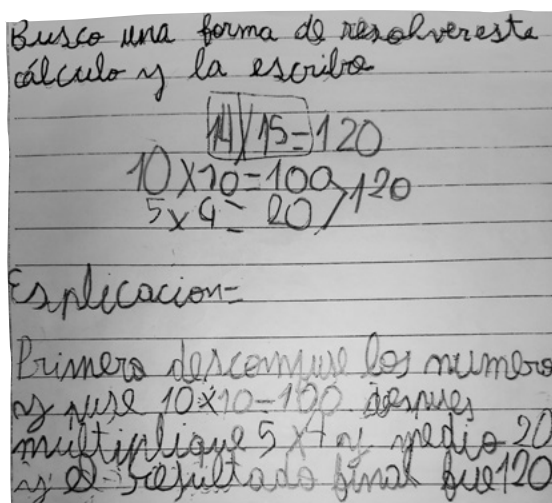 Busco una forma de resolver esta
cálculo y la escribo
14 x 15 = 120
10 x 10 = 100
120
5 x 4 = 20
Esplicacion=
Primero descompuse los numero
y puse 10x10=100 despues
multiplique 5 x 4 y medio 20
y el resultado final fue 120